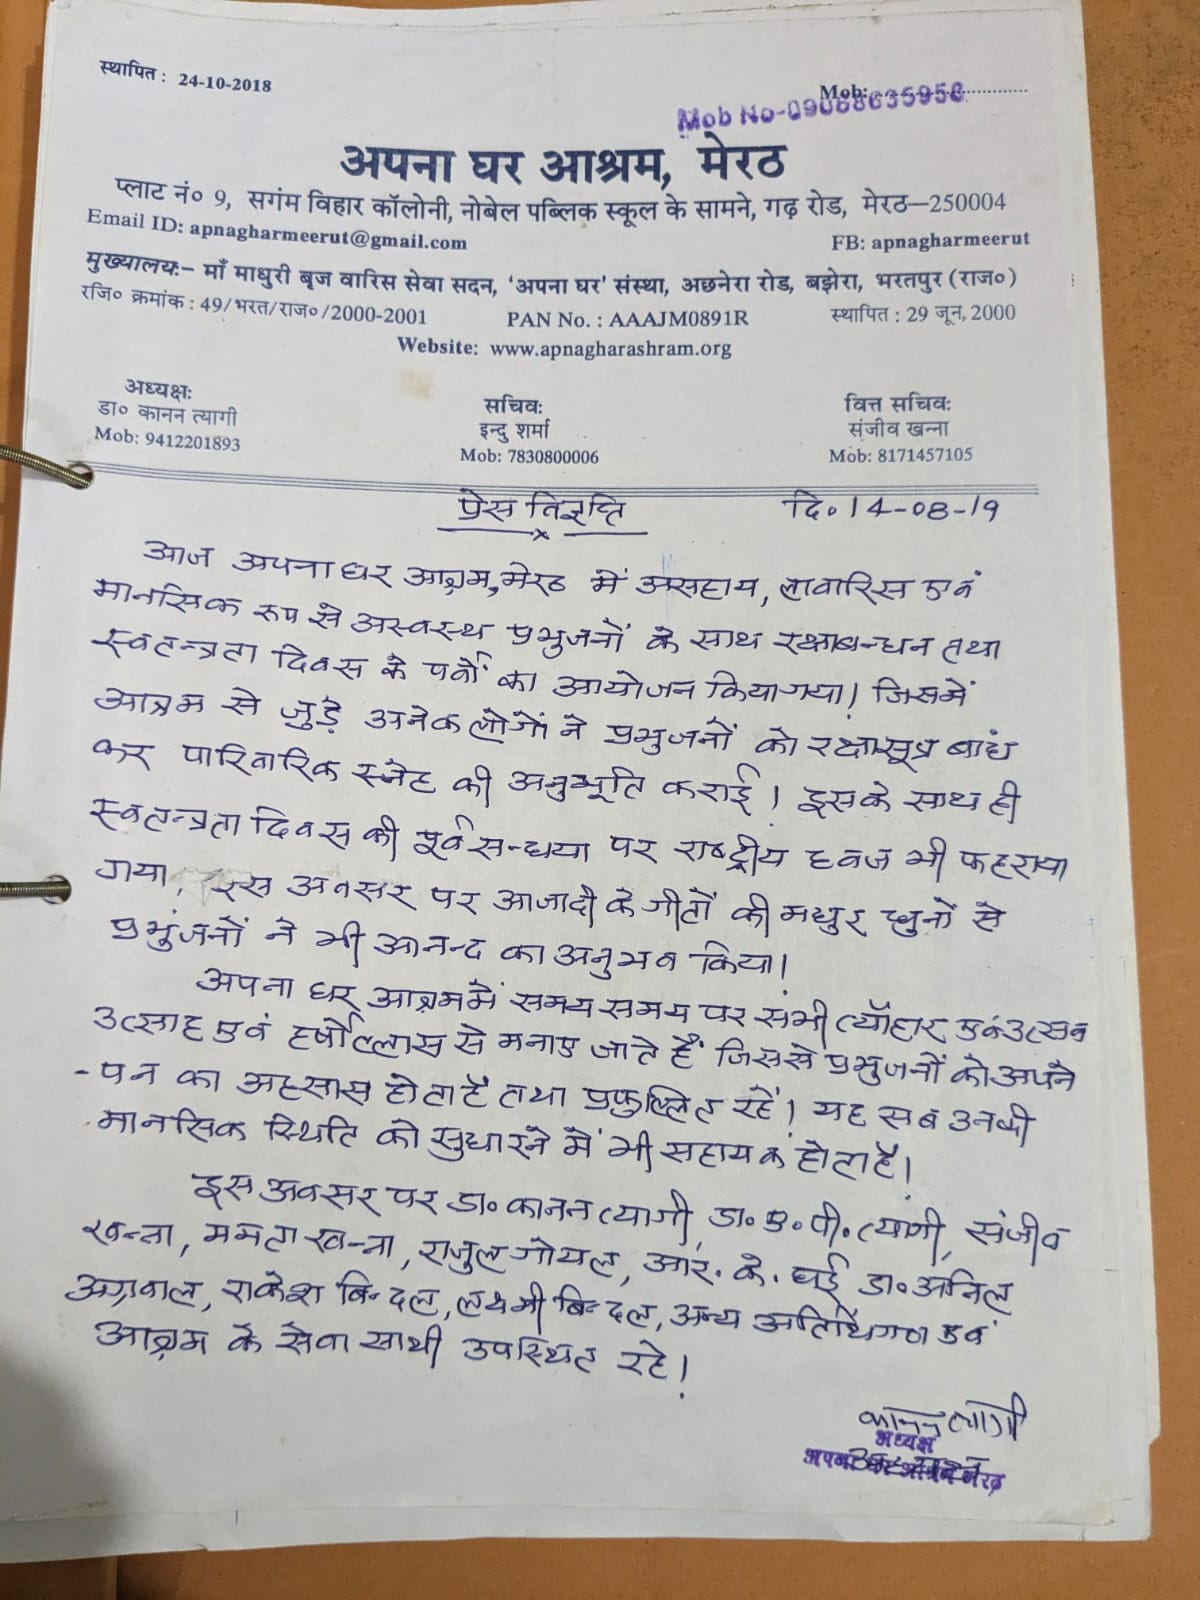 स्थापित : 24-10-2018
Mob:
Mob No-09068635956
अपना घर आश्रम, मेरठ
प्लाट नं० 9, सगंम विहार कॉलोनी, नोबेल पब्लिक स्कूल के सामने, गढ़ रोड, मेरठ—250004
Email ID: apnagharmeerut@gmail.com FB: apnagharmeerut
मुख्यालयः– माँ माधुरी बृज वारिस सेवा सदन, 'अपना घर' संस्था, अछनेरा रोड, बझेरा, भरतपुर (राज०)
रजि० क्रमांक : 49/भरत/राज०/2000-2001 PAN No. : AAAJM0891R स्थापित : 29 जून, 2000
Website: www.apnagharashram.org
अध्यक्षः सचिवः वित्त सचिवः
डा० कानन त्यागी इन्दु शर्मा संजीव खन्ना
Mob: 9412201893 Mob: 7830800006 Mob: 8171457105
प्रेस विज्ञप्ति दि० 14-08-19
आज अपना घर आश्रम, मेरठ में असहाय, लावारिस एवं
मानसिक रूप से अस्वस्थ प्रभुजनों के साथ रक्षाबन्धन तथा
स्वतन्त्रता दिवस के पर्वों का आयोजन किया गया। जिसमें
आश्रम से जुड़े अनेक लोगों ने प्रभुजनों को रक्षासूत्र बांध
कर पारिवारिक स्नेह की अनुभूति कराई। इसके साथ ही
स्वतन्त्रता दिवस की पूर्व सन्ध्या पर राष्ट्रीय ध्वज भी फहराया
गया, इस अवसर पर आजादी के गीतों की मधुर धुनों से
प्रभुजनों ने भी आनन्द का अनुभव किया।
अपना घर आश्रम में समय समय पर सभी त्यौहार एवं उत्सव
उत्साह एवं हर्षोल्लास से मनाए जाते हैं जिससे प्रभुजनों को अपने
-पन का अहसास होता है तथा प्रफुल्लित रहें। यह सब उनकी
मानसिक स्थिति को सुधारने में भी सहायक होता है।
इस अवसर पर डा. कानन त्यागी, डा. ए. पी. त्यागी, संजीव
खन्ना, ममता खन्ना, राजुल गोयल, आर. के. घई डा. अनिल
अग्रवाल, राकेश बिन्दल, लक्ष्मी बिन्दल, अन्य अतिथिगण एवं
आश्रम के सेवा साथी उपस्थित रहे।
कानन त्यागी
अध्यक्ष
अपना घर आश्रम मेरठ